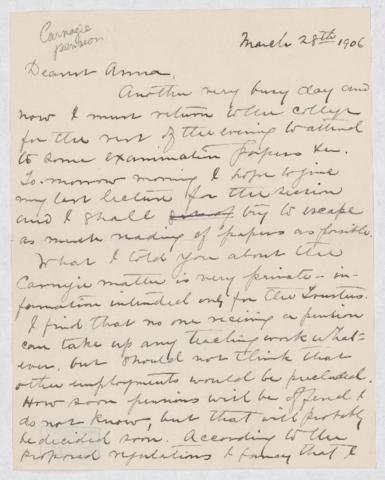 Carnegie
pension
March 28th 1906
Dearest Anna,
Another very busy day and
now I must return to the college
for the rest of the evening to attend
to some examination papers &c.
To-morrow morning I hope to give
my last lecture for the session
and I shall try to escape
as much reading of papers as possible.
What I told you about the
Carnegie matter is very private - in-
formation intended only for the Trustees.
I find that no one receiving a pension
can take up any teaching work what-
ever, but should not think that
other employments would be precluded.
How soon pensions will be offered I
do not know, but that will probably
be decided soon. According to the
proposed regulations I fancy that I